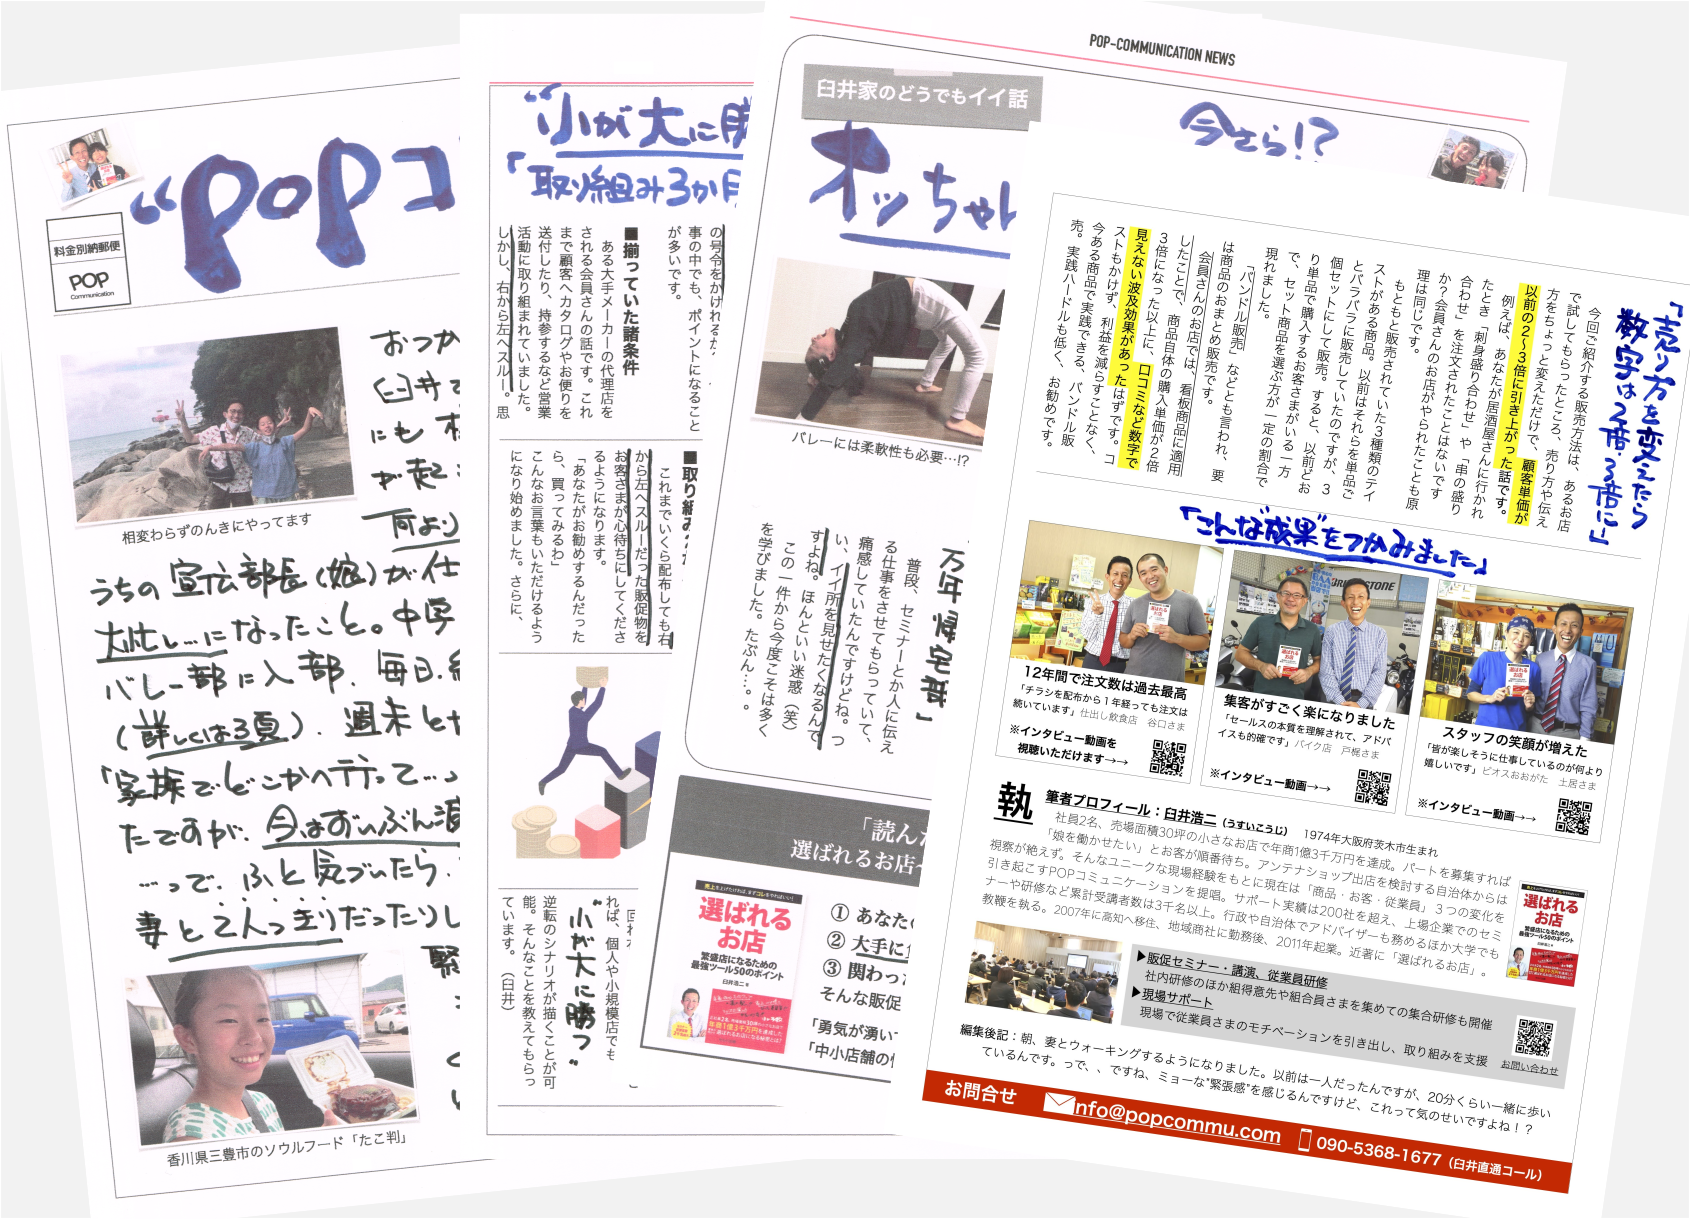 “POPコ
料金別納郵便
POP
Communication
おっか
(臼井で
にも
が起
何より
相変わらずのんきにやってます
うちの宣伝部長(娘)が仕
大忙し…になったこと。中学
バレー部に入部、毎日、
(詳しくは3頁)、週末とな
「家族でどこかへ行って…」
たですが、今はずいぶん減
…って、ふと気づいたら、
妻と2人っきりだったりし
緊
香川県三豊市のソウルフード「たこ判」
“小が大に勝
「取り組み3か月
の号令をかけれるか、
事の中でも、ポイントになること
が多いです。
■揃っていた諸条件
ある大手メーカーの代理店を
される会員さんの話です。これ
まで顧客へカタログやお便りを
送付したり、持参するなど営業
活動に取り組まれていました。
しかし、右から左へスルー。思
■取り組み
これまでいくら配布しても右
から左へスルーだった販促物を
お客さまが心待ちにしてくださ
るようになります。
「あなたがお勧めするんだった
ら、買ってみるわ」
こんなお言葉もいただけるよう
になり始めました。さらに、
れば、個人や小規模店でも
“小が大に勝つ”
逆転のシナリオが描くことが可
能。そんなことを教えてもらっ
ています。（臼井）
POP-COMMUNICATION NEWS
臼井家のどうでもイイ話
今さら!?
オッちゃん
バレーには柔軟性も必要…!?
万年帰宅部」
普段、セミナーとか人に伝え
る仕事をさせてもらっていて、
痛感していたんですけどね。つ
い、イイ所を見せたくなるんで
すよね。ほんといい迷惑（笑）
この一件から今度こそは多く
を学びました。たぶん…。
「読んだ
選ばれるお店
売上を上げたければ、まずコレをやればいい！
選ばれる
お店
繁盛店になるための
最強ツール50のポイント
臼井浩二 著
年商1億3千万円を達成した
① あなた
② 大手に
③ 関わっ
そんな販促
「勇気が湧い
「中小店舗の
「売り方を変えたら
数字は2倍・3倍に」
今回ご紹介する販売方法は、あるお店
で試してもらったところ、売り方や伝え
方をちょっと変えただけで、顧客単価が
以前の2～3倍に引き上がった話です。
例えば、あなたが居酒屋さんに行かれ
たとき「刺身盛り合わせ」や「串の盛り
合わせ」を注文されたことはないです
か？会員さんのお店がやられたことも原
理は同じです。
もともと販売されていた3種類のテイ
ストがある商品。以前はそれらを単品ご
とバラバラに販売していたのですが、3
個セットにして販売。すると、以前どお
り単品で購入するお客さまがいる一方
で、セット商品を選ぶ方が一定の割合で
現れました。
「バンドル販売」などとも言われ、要
は商品のおまとめ販売です。
会員さんのお店では、看板商品に適用
したことで、商品自体の購入単価が2倍
3倍になった以上に、口コミなど数字で
見えない波及効果があったはずです。コ
ストもかけず、利益を減らすことなく、
今ある商品で実践できる、バンドル販
売。実践ハードルも低く、お勧めです。
「こんな“成果”をつかみました」
12年間で注文数は過去最高
「チラシを配布から1年経っても注文は
続いています」仕出し飲食店　谷口さま
※インタビュー動画を
視聴いただけます→→
集客がすごく楽になりました
「セールスの本質を理解されて、アドバ
イスも的確です」バイク店　戸梶さま
※インタビュー動画→→
スタッフの笑顔が増えた
「皆が楽しそうに仕事しているのが何より
嬉しいです」ビオスおおがた　土居さま
※インタビュー動画→→
執 筆者プロフィール：臼井浩二（うすいこうじ）　1974年大阪府茨木市生まれ
社員2名、売場面積30坪の小さなお店で年商1億3千万円を達成。パートを募集すれば
「娘を働かせたい」とお客が順番待ち。アンテナショップ出店を検討する自治体からは
視察が絶えず。そんなユニークな現場経験をもとに現在は「商品・お客・従業員」３つの変化を
引き起こすPOPコミュニケーションを提唱。サポート実績は200社を超え、上場企業でのセミ
ナーや研修など累計受講者数は3千名以上。行政や自治体でアドバイザーも務めるほか大学でも
教鞭を執る。2007年に高知へ移住、地域商社に勤務後、2011年起業。近著に「選ばれるお店」。
選ばれる
お店
繁盛店になるための
最強ツール50のポイント
▶販促セミナー・講演、従業員研修
社内研修のほか組得意先や組合員さまを集めての集合研修も開催
▶現場サポート
現場で従業員さまのモチベーションを引き出し、取り組みを支援
お問い合わせ
編集後記：朝、妻とウォーキングするようになりました。以前は一人だったんですが、20分くらい一緒に歩い
ているんです。っで、、ですね、ミョーな“緊張感”を感じるんですけど、これって気のせいですよね！？
お問合せ nfo@popcommu.com 090-5368-1677（臼井直通コール）